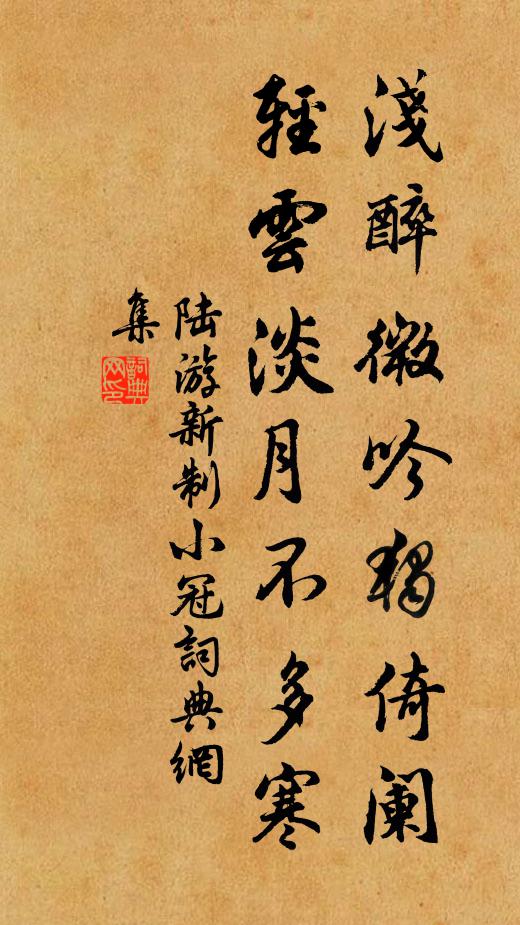 淺醉微吟獨倚阑
輕雲淡月不多寒
陆游新制小冠詞典網
集
詞典
网印